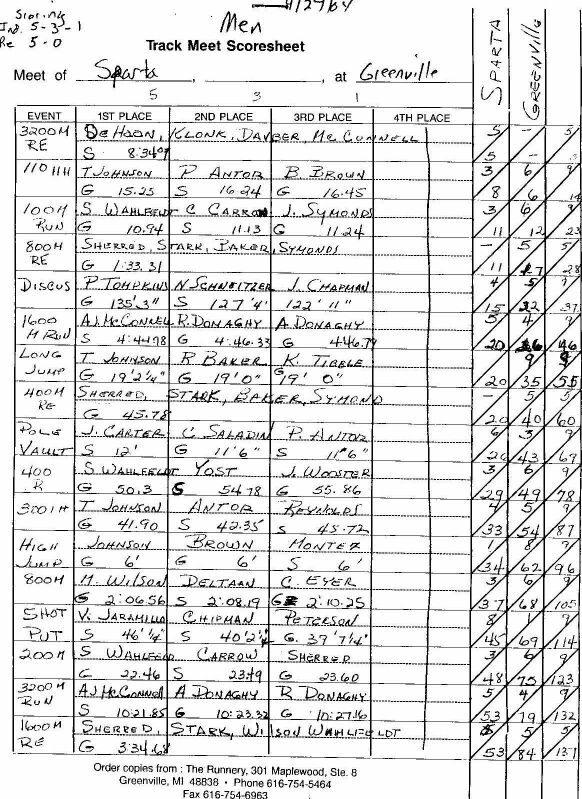 Scoring
Ind. 5-3-1
Re 5-0
4/29/84
Men
Track Meet Scoresheet
Meet of Sparta, , at Greenville
5 3 1
SPARTA GREENVILLE
EVENT 1ST PLACE 2ND PLACE 3RD PLACE 4TH PLACE
3200M DeHOON, KLONK, DAVBER, McCONNELL 5 -
RE S 8:34.09 5 -
110 HH T JOHNSON P ANTOR B BROWN 3 6 9
G 15.25 S 16.24 G 16.45 8 6 14
100M S WAHLFELDT C CARROW J. SYMONDS 3 6 9
RUN G 10.94 S 11.13 G 11.24 11 12 23
800M SHERRED, STARK, BAKER, SYMONDS - 5 5
RE G 1:33.31 11 17 28
DISCUS P. TOMPKINS N SCHNEITZER J. CHAPMAN 4 5 9
G 135'3" S 127'4" 122' 11" 15 22 37
1600 AJ McCONNEL R. DONAGHY A DONAGHY 5 4 9
M RUN S 4:44.78 G 4:46.33 G 4:46.79 20 26 46
LONG T JOHNSON R BAKER K. TIBBLE 9 9
JUMP G 19'2¼" G 19'0" G 19' 0" 20 35 55
400M SHERRED, STARK, BAKER, SYMOND - 5 5
RE G 45.78 20 40 60
POLE J. CARTER C SALADIN P. ANTOR 6 3 9
VAULT S 12' G 11'6" S 11'6" 26 43 69
400 S WAHLFELDT YOST J. WOOSTER 3 6 9
R G 50.3 S 54.78 G 55.86 29 49 78
300 IH T JOHNSON ANTOR REYNOLDS 4 5 9
G 41.90 S 42.35 S 45.72 33 54 87
HIGH JOHNSON BROWN MONTEZ 1 8 9
JUMP G 6' G 6' S 6' 34 62 96
800M M. WILSON DELTAAN C. EYER 3 6 9
G 2:06.56 S 2:08.19 G 2:10.25 37 68 105
SHOT V. JARAMILLO CHIPMAN PETERSON 8 1 9
PUT S 46'¼' S 40'2½ G. 39'7¼' 45 69 114
200M S WAHLFELD CARROW SHERRED 3 6 9
G 22.46 S 23.49 G 23.60 48 75 123
3200M AJ McCONNEL A DONAGHY R DONAGHY 5 4 9
RUN S 10:21.85 G 10:23.32 G 10:27.16 53 79 132
1600M SHERRED, STARK, WILSON WAHLFELDT 5 5
RE G 3:34.68 53 84 137
Order copies from : The Runnery, 301 Maplewood, Ste. 8
Greenville, MI 48838 • Phone 616-754-5464
Fax 616-754-6963